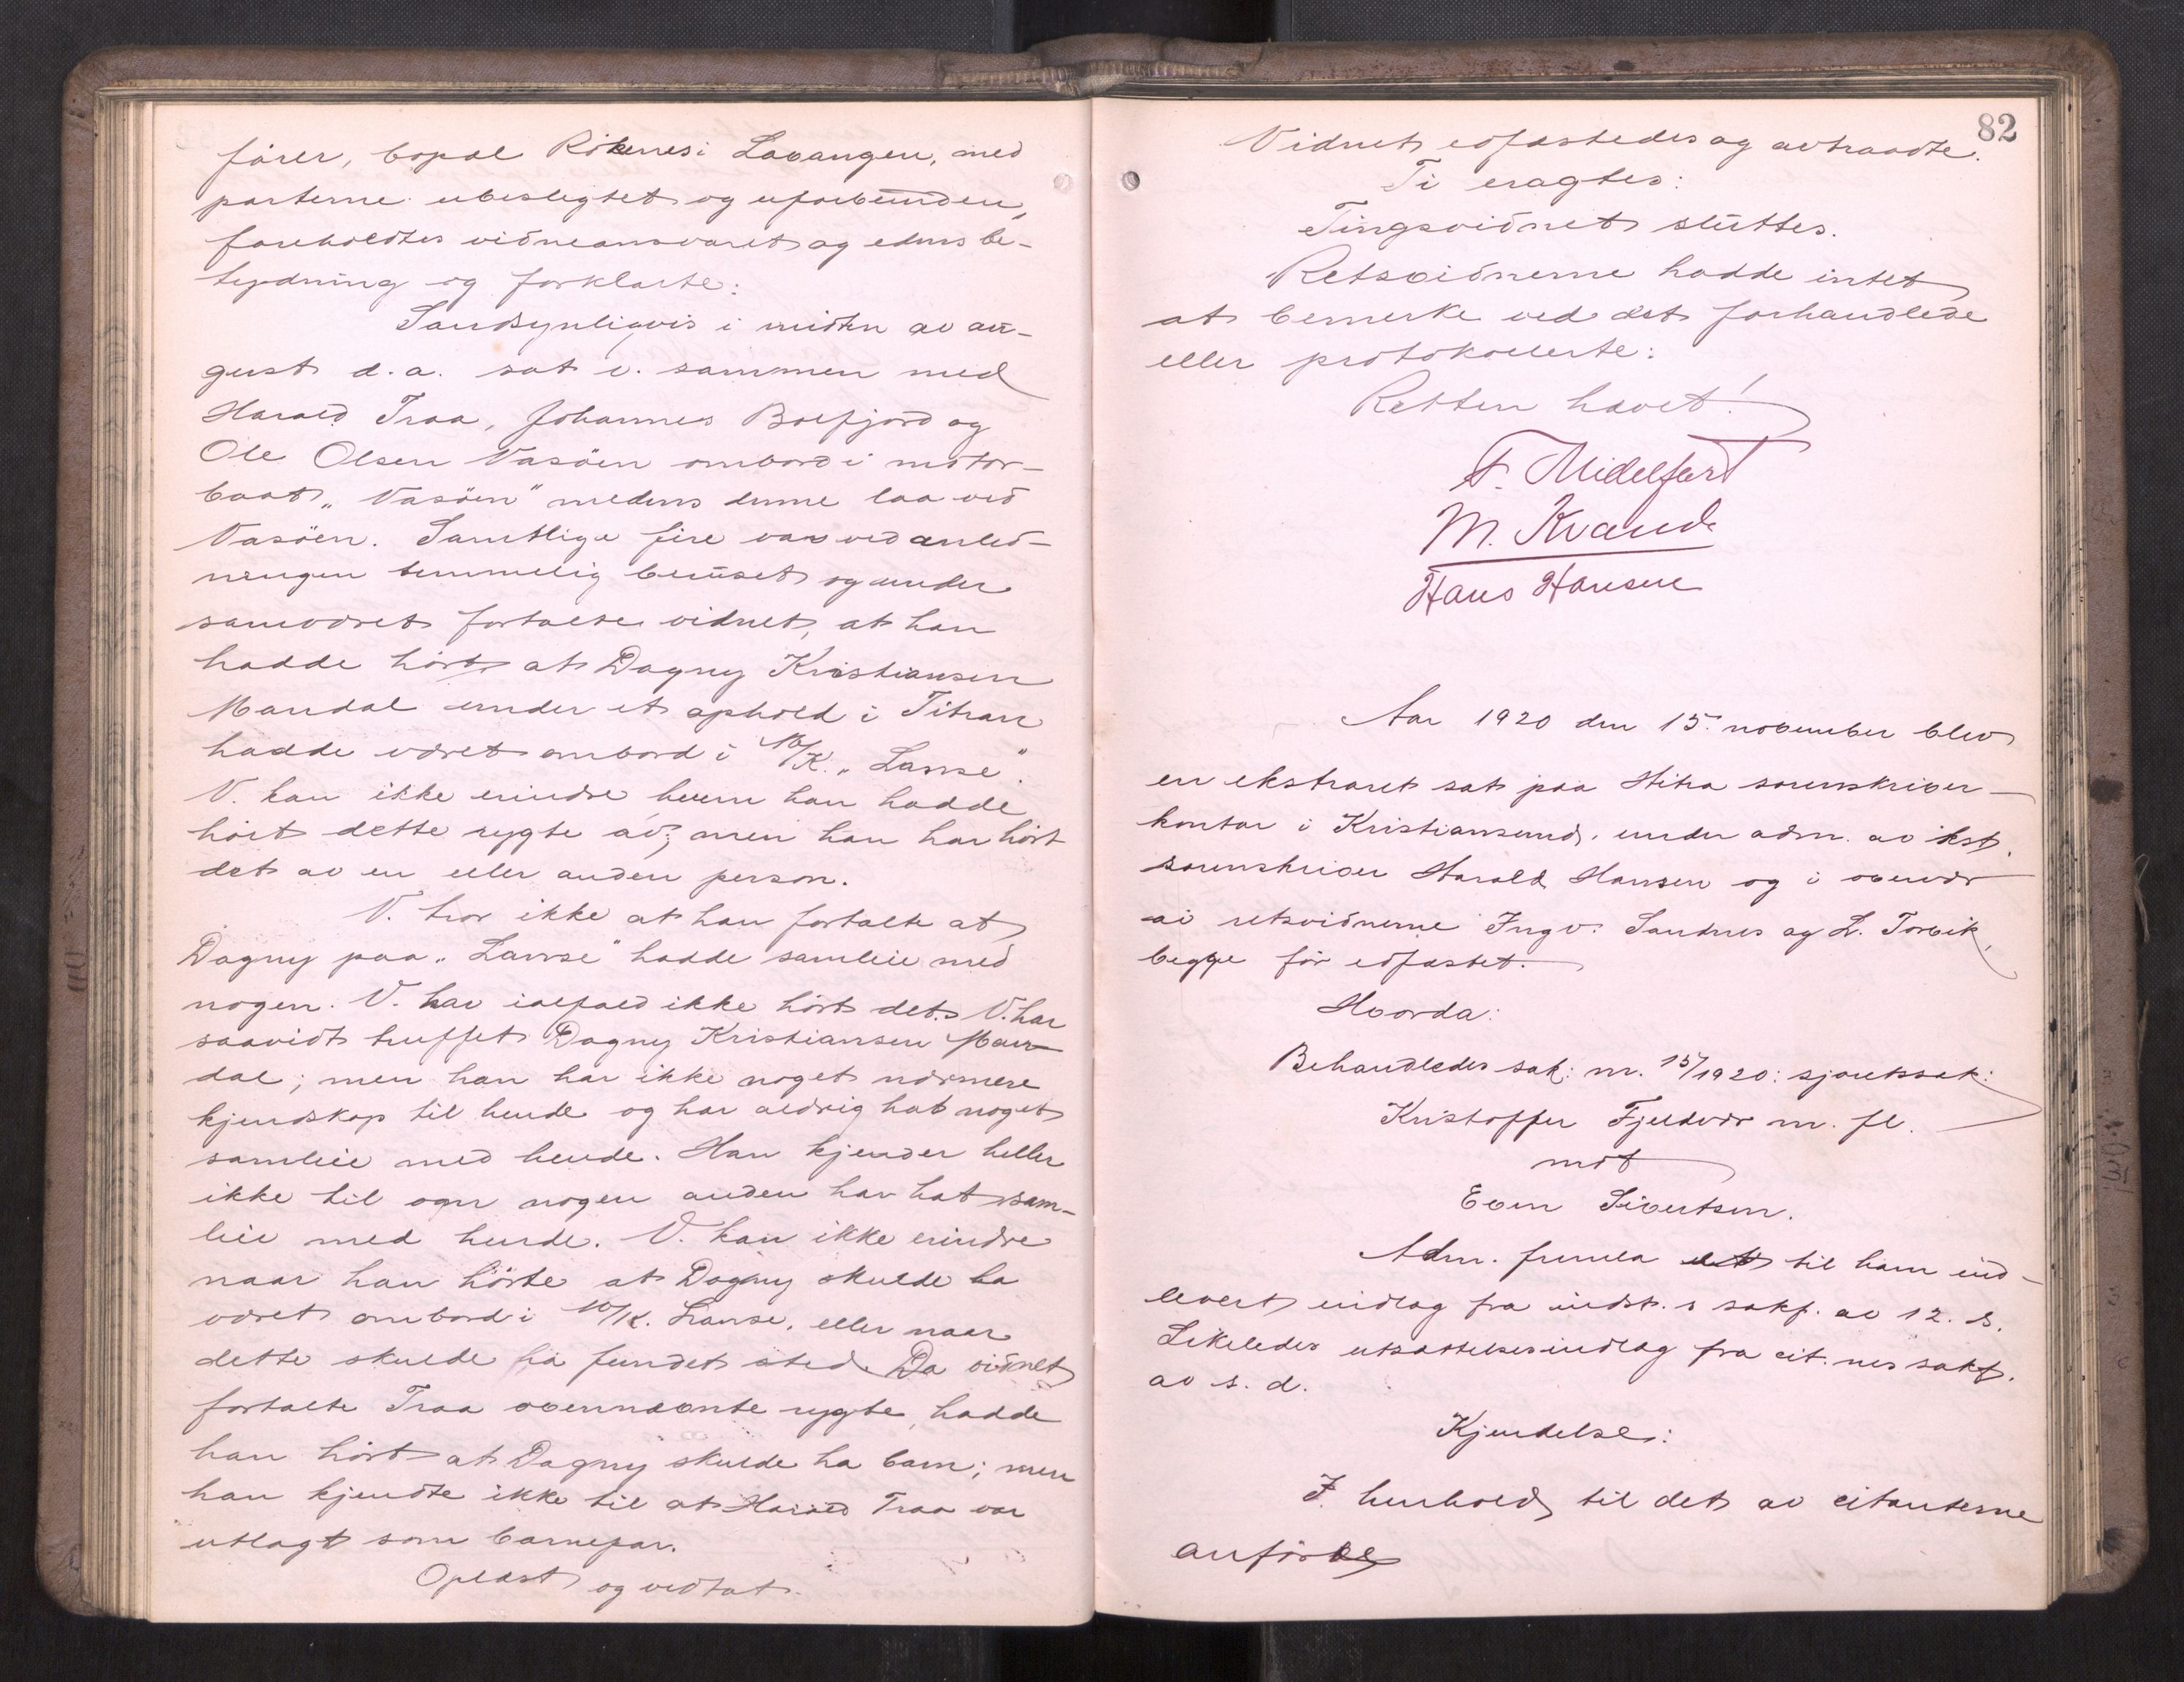 fører, bopæl Rökenes i Lavangen, med
parterne ubeslegtet og uforbunden,
foreholdtes vidneansvaret og edens be-
tydning og forklarte:
Sandsynligvis i midten av au-
gust d.a. sat v. sammen med
Harald Traa, Johannes Bolfjord og
Ole Olsen Vasöen ombord i motor-
baat „Vasöen" medens denne laa ved
Vasöen. Samtlige fire var ved anled-
ningen temmelig beruset og under
samværet fortalte vidnet, at han
hadde hört at Dagny Kristiansen
Mandal under et ophold i Titran
hadde været ombord i M/K. „Lanse".
V. kan ikke erindre hvem han hadde
hört dette rygte av; men han har hört
det av en eller anden person.
V. tror ikke at han fortalte at
Dagny paa „Lanse" hadde samleie med
nogen. V. har ialfald ikke hört det. V. har
saavidt truffet Dagny Kristiansen Man-
dal; men han har ikke noget nærmere
kjendskap til hende og har aldrig hat noget
samleie med hende. Han kjender heller
ikke til om nogen anden har hat sam-
leie med hende. V. kan ikke erindre
naar han hörte at Dagny skulde ha
været ombord i M/K. Lanse, eller naar
dette skulde ha fundet sted. Da vidnet
fortalte Traa ovennævnte rygte, hadde
han hört at Dagny skulde ha barn; men
han kjendte ikke til at Harald Traa var
utlagt som barnefar.
Oplæst og vedtat.
82
Vidnet edfæstedes og avtraadte.
Ti eragtes:
Tingsvidnet sluttes.
Retsvidnerne hadde intet
at bemerke ved det forhandlede
eller protokollerte:
Retten hævet!
F. Midelfart
M. Kvande
Hans Hansen
Aar 1920 den 15. november blev
en ekstraret sat paa Hitra sorenskriver-
kontor i Kristiansund, under adm. av kst.
sorenskriver Harald Hansen og i overvær
av retsvidnerne Ingv. Sandnes og L. Torvik,
begge før edfæstet.
Hvorda:
Behandledes sak: nr. 15/1920: sjøretssak:
Kristoffer Fjeldvær m. fl.
mot
Even Sivertsen.
Adm. fremla det til ham ind-
levert indlæg fra indst.s sakf. av 12. ds.
Likeledes utsættelsesindlæg fra cit.nes sakf.
av s. d.
Kjendelse:
I henhold til det av citanterne
anförte